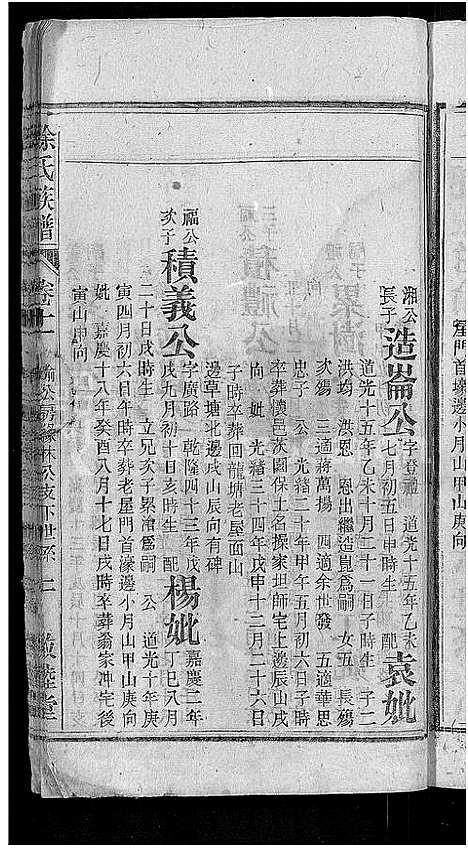 屋門首壕邊小月山甲山庚向
湘公長子造崙公字登禮 道光十五年乙未七月初五日申時生 配袁妣
道光十五年乙未十月二十一日子時生 子二
洪均 洪恩 恩出繼造崑爲嗣 女五 長殤
次殤 三適蔣萬塲 四適余世發 五適華恩
忠子 公 光緒二十年甲午五月初六日子時
卒葬懷皇茨園保土名操家坦師宅上邊辰山戌
向 妣 光緒三十四年戊申十二月二十六日
子時卒葬回龍塘老屋面山
邊草塘北邊戌山辰向有碑
福公次子積義公字廣路 乾隆四十三年戊戌九月初十日亥時生 配楊妣嘉慶二年丁巳八月
二十日戌時生 立兄次子累滄爲嗣 公 道光十年庚
寅四月初六日年時卒葬老屋門首濠邊小月山甲山庚向
妣 嘉慶十八年癸酉八月十七日戌時卒葬翁家冲宅後
寅山申向
徐氏族譜 卷十一 公房緣林公支下世系 二 敦睦堂